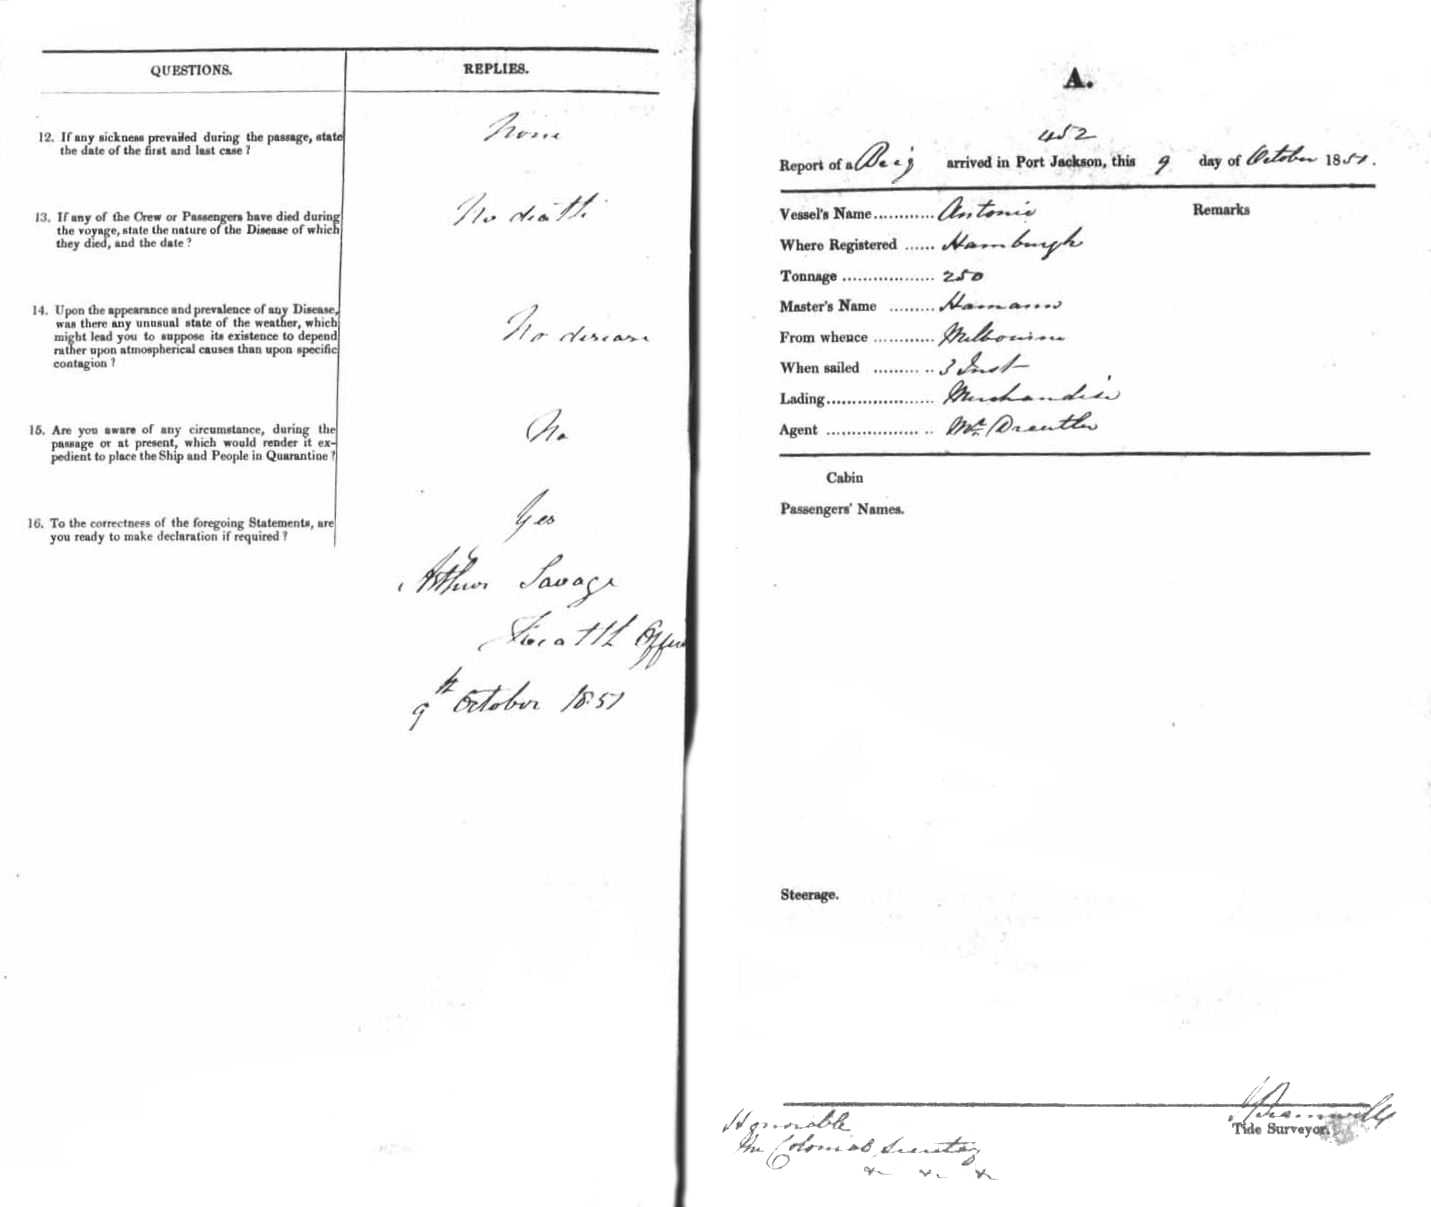 QUESTIONS.
REPLIES.
12. If any sickness prevailed during the passage, state
the date of the first and last case ?
None
13. If any of the Crew or Passengers have died during
the voyage, state the nature of the Disease of which
they died, and the date ?
No death
14. Upon the appearance and prevalence of any Disease,
was there any unusual state of the weather, which
might lead you to suppose its existence to depend
rather upon atmospherical causes than upon specific
contagion ?
No disease
15. Are you aware of any circumstance, during the
passage or at present, which would render it ex-
pedient to place the Ship and People in Quarantine ?
No
16. To the correctness of the foregoing Statements, are
you ready to make declaration if required ?
Yes
Arthur Savage
Health Officer
9th October 1851
A.
452
Report of a Brig arrived in Port Jackson, this 9 day of October 1851.
Vessel's Name............ Antonie
Remarks
Where Registered ...... Hamburgh
Tonnage .................. 250
Master's Name ......... Hamann
From whence ............ Melbourne
When sailed ......... .. 3 Inst
Lading..................... Merchandise
Agent .................. .. Mr.
Cabin
Passengers' Names.
Steerage.
Tide Surveyor.
Honorable
The Colonial Secretary
&c &c &c